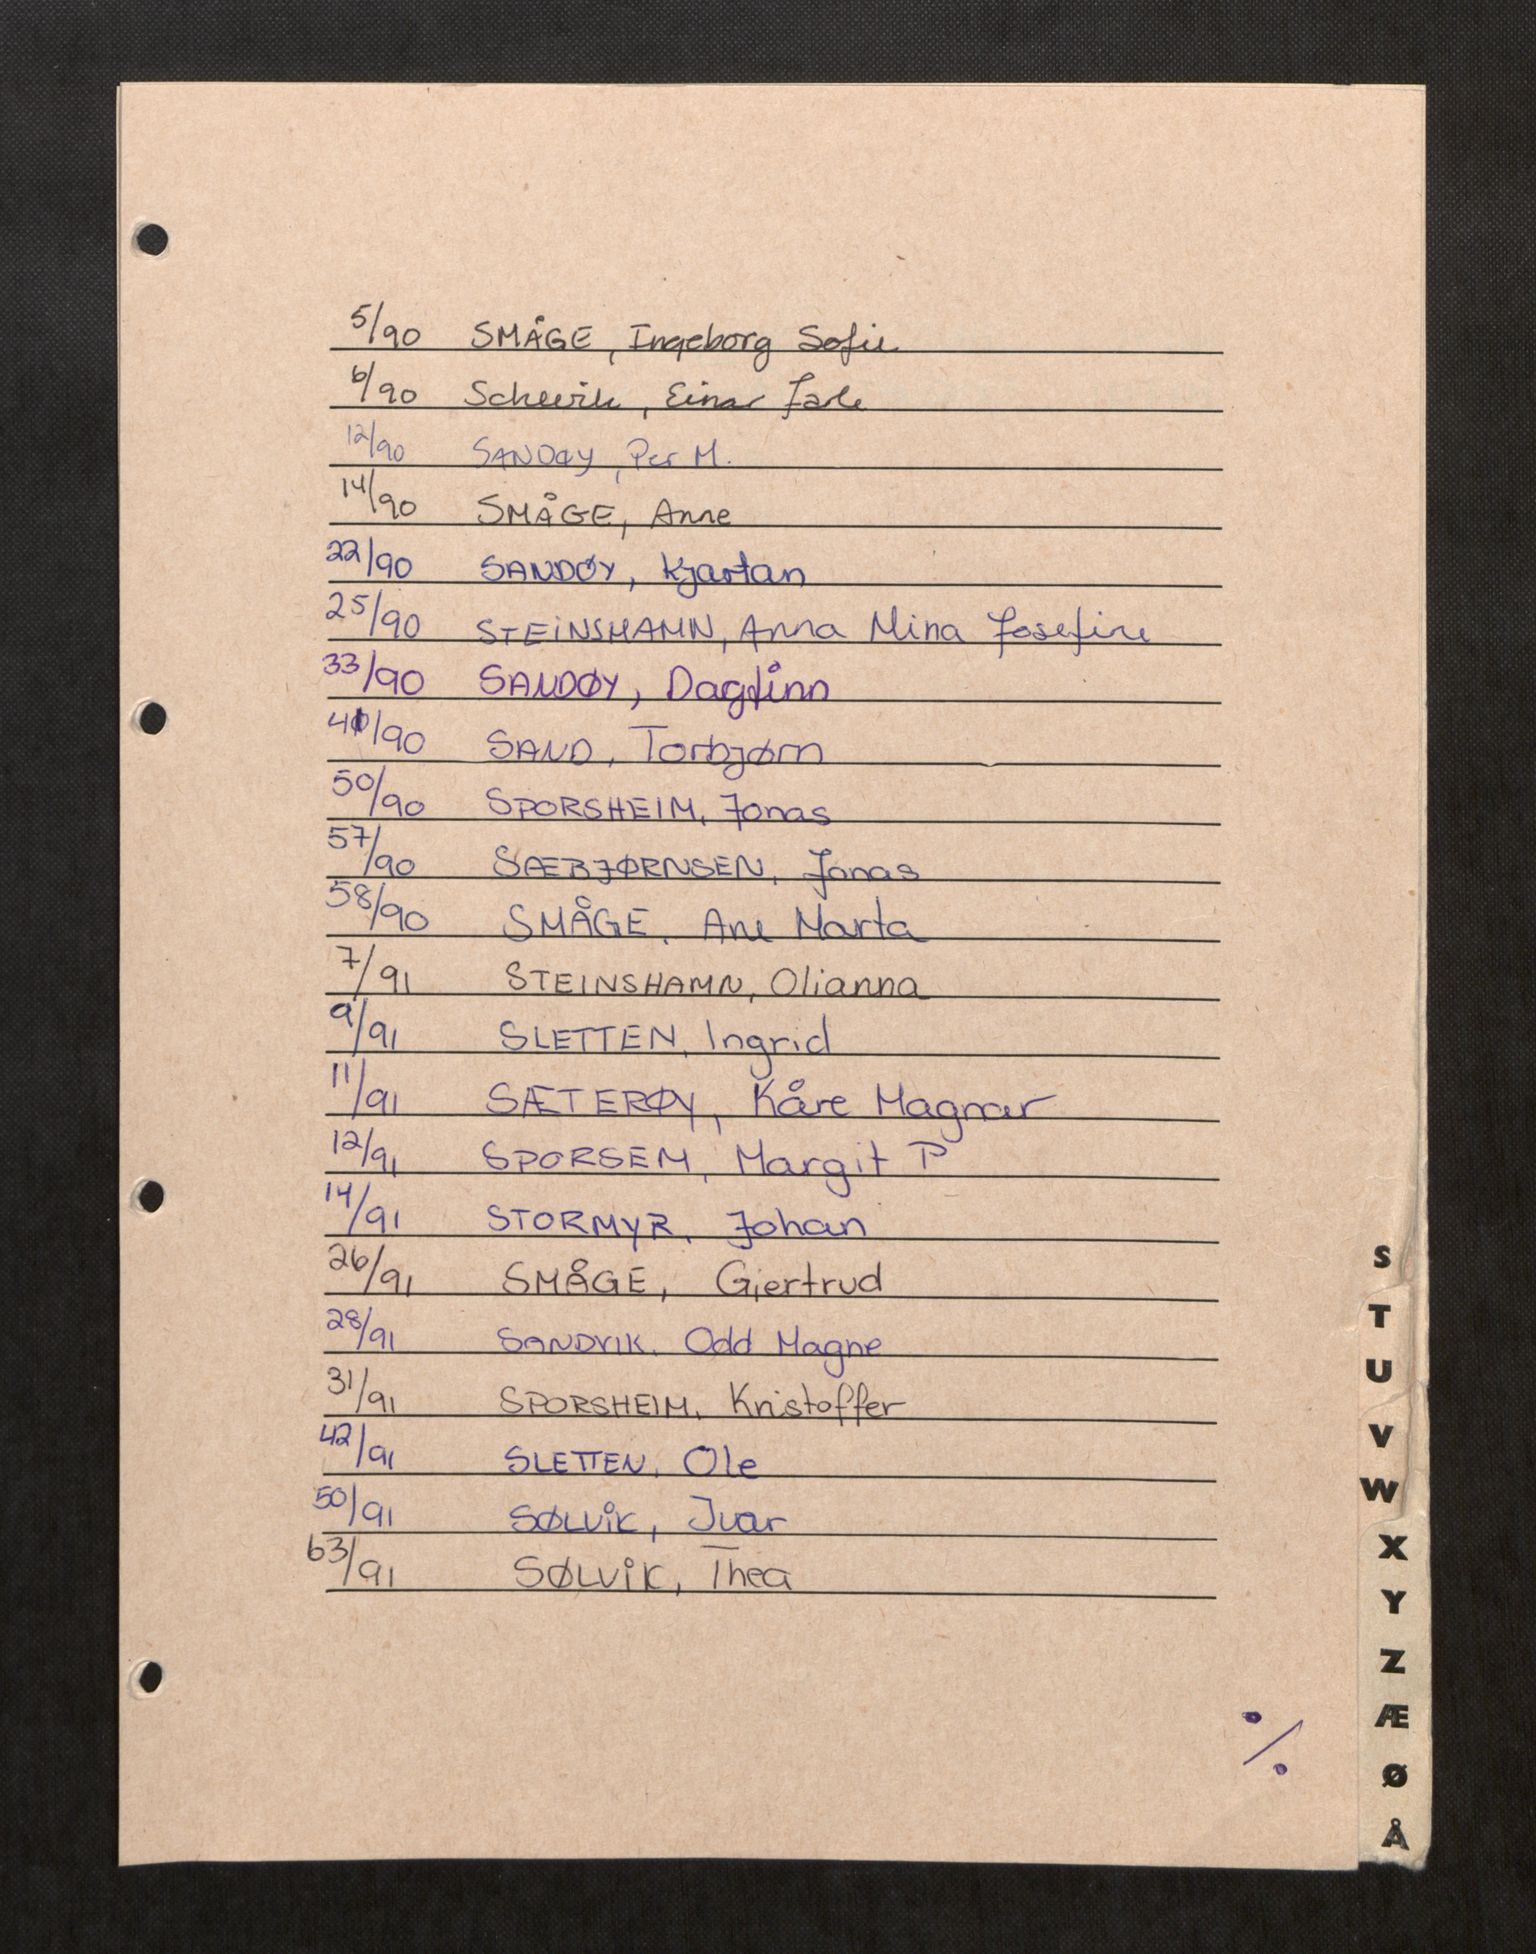 5/90 SMÅGE, Ingeborg Sofie
6/90 Schevik, Einar Jarle
12/90 SANDØY, Per M.
14/90 SMÅGE, Anne
22/90 SANDØY, Kjartan
25/90 STEINSHAMN, Anna Mina Josefine
33/90 SANDØY, Dagfinn
/90 SAND, Torbjørn
50/90 SPORSHEIM, Jonas
57/90 SÆBJØRNSEN, Jonas
58/90 SMÅGE, Ane Marta
7/91 STEINSHAMN, Olianna
9/91 SLETTEN, Ingrid
11/91 SÆTERØY, Kåre Magnar
12/91 SPORSEM, Margit P
14/91 STORMYR, Johan
26/91 SMÅGE, Gjertrud
28/91 SANDVIK, Odd Magne
31/91 SPORSHEIM, Kristoffer
42/91 SLETTEN, Ole
50/91 SØLVIK, Ivar
63/91 SØLVIK, Thea
S
T
U
V
W
X
Y
Z
Æ
Ø
Å